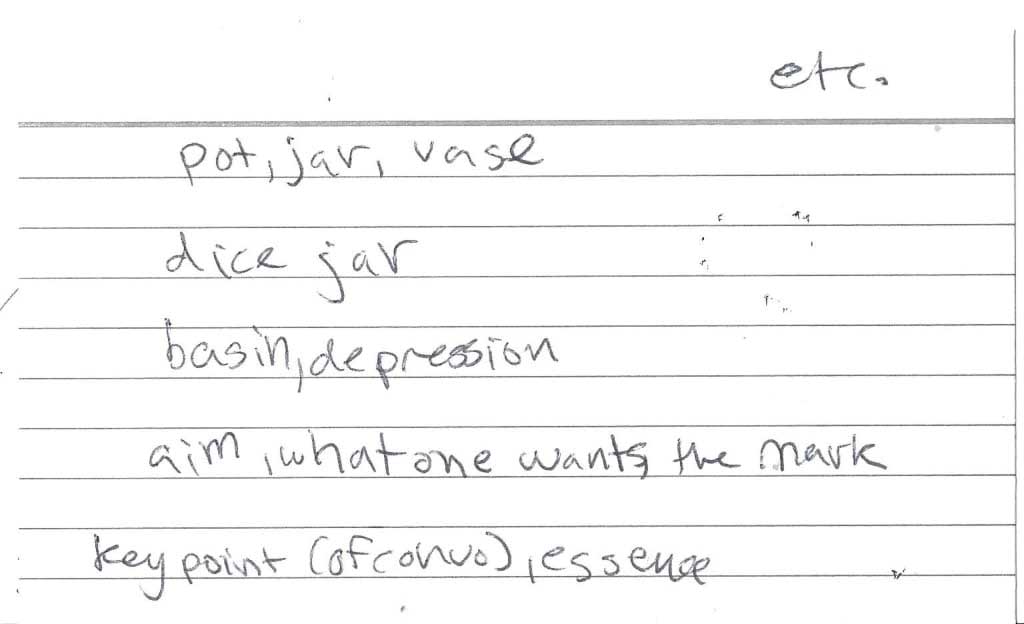 etc.
pot, jar, vase
dice jar
basin, depression
aim, what one wants, the mark
key point (of convo), essence